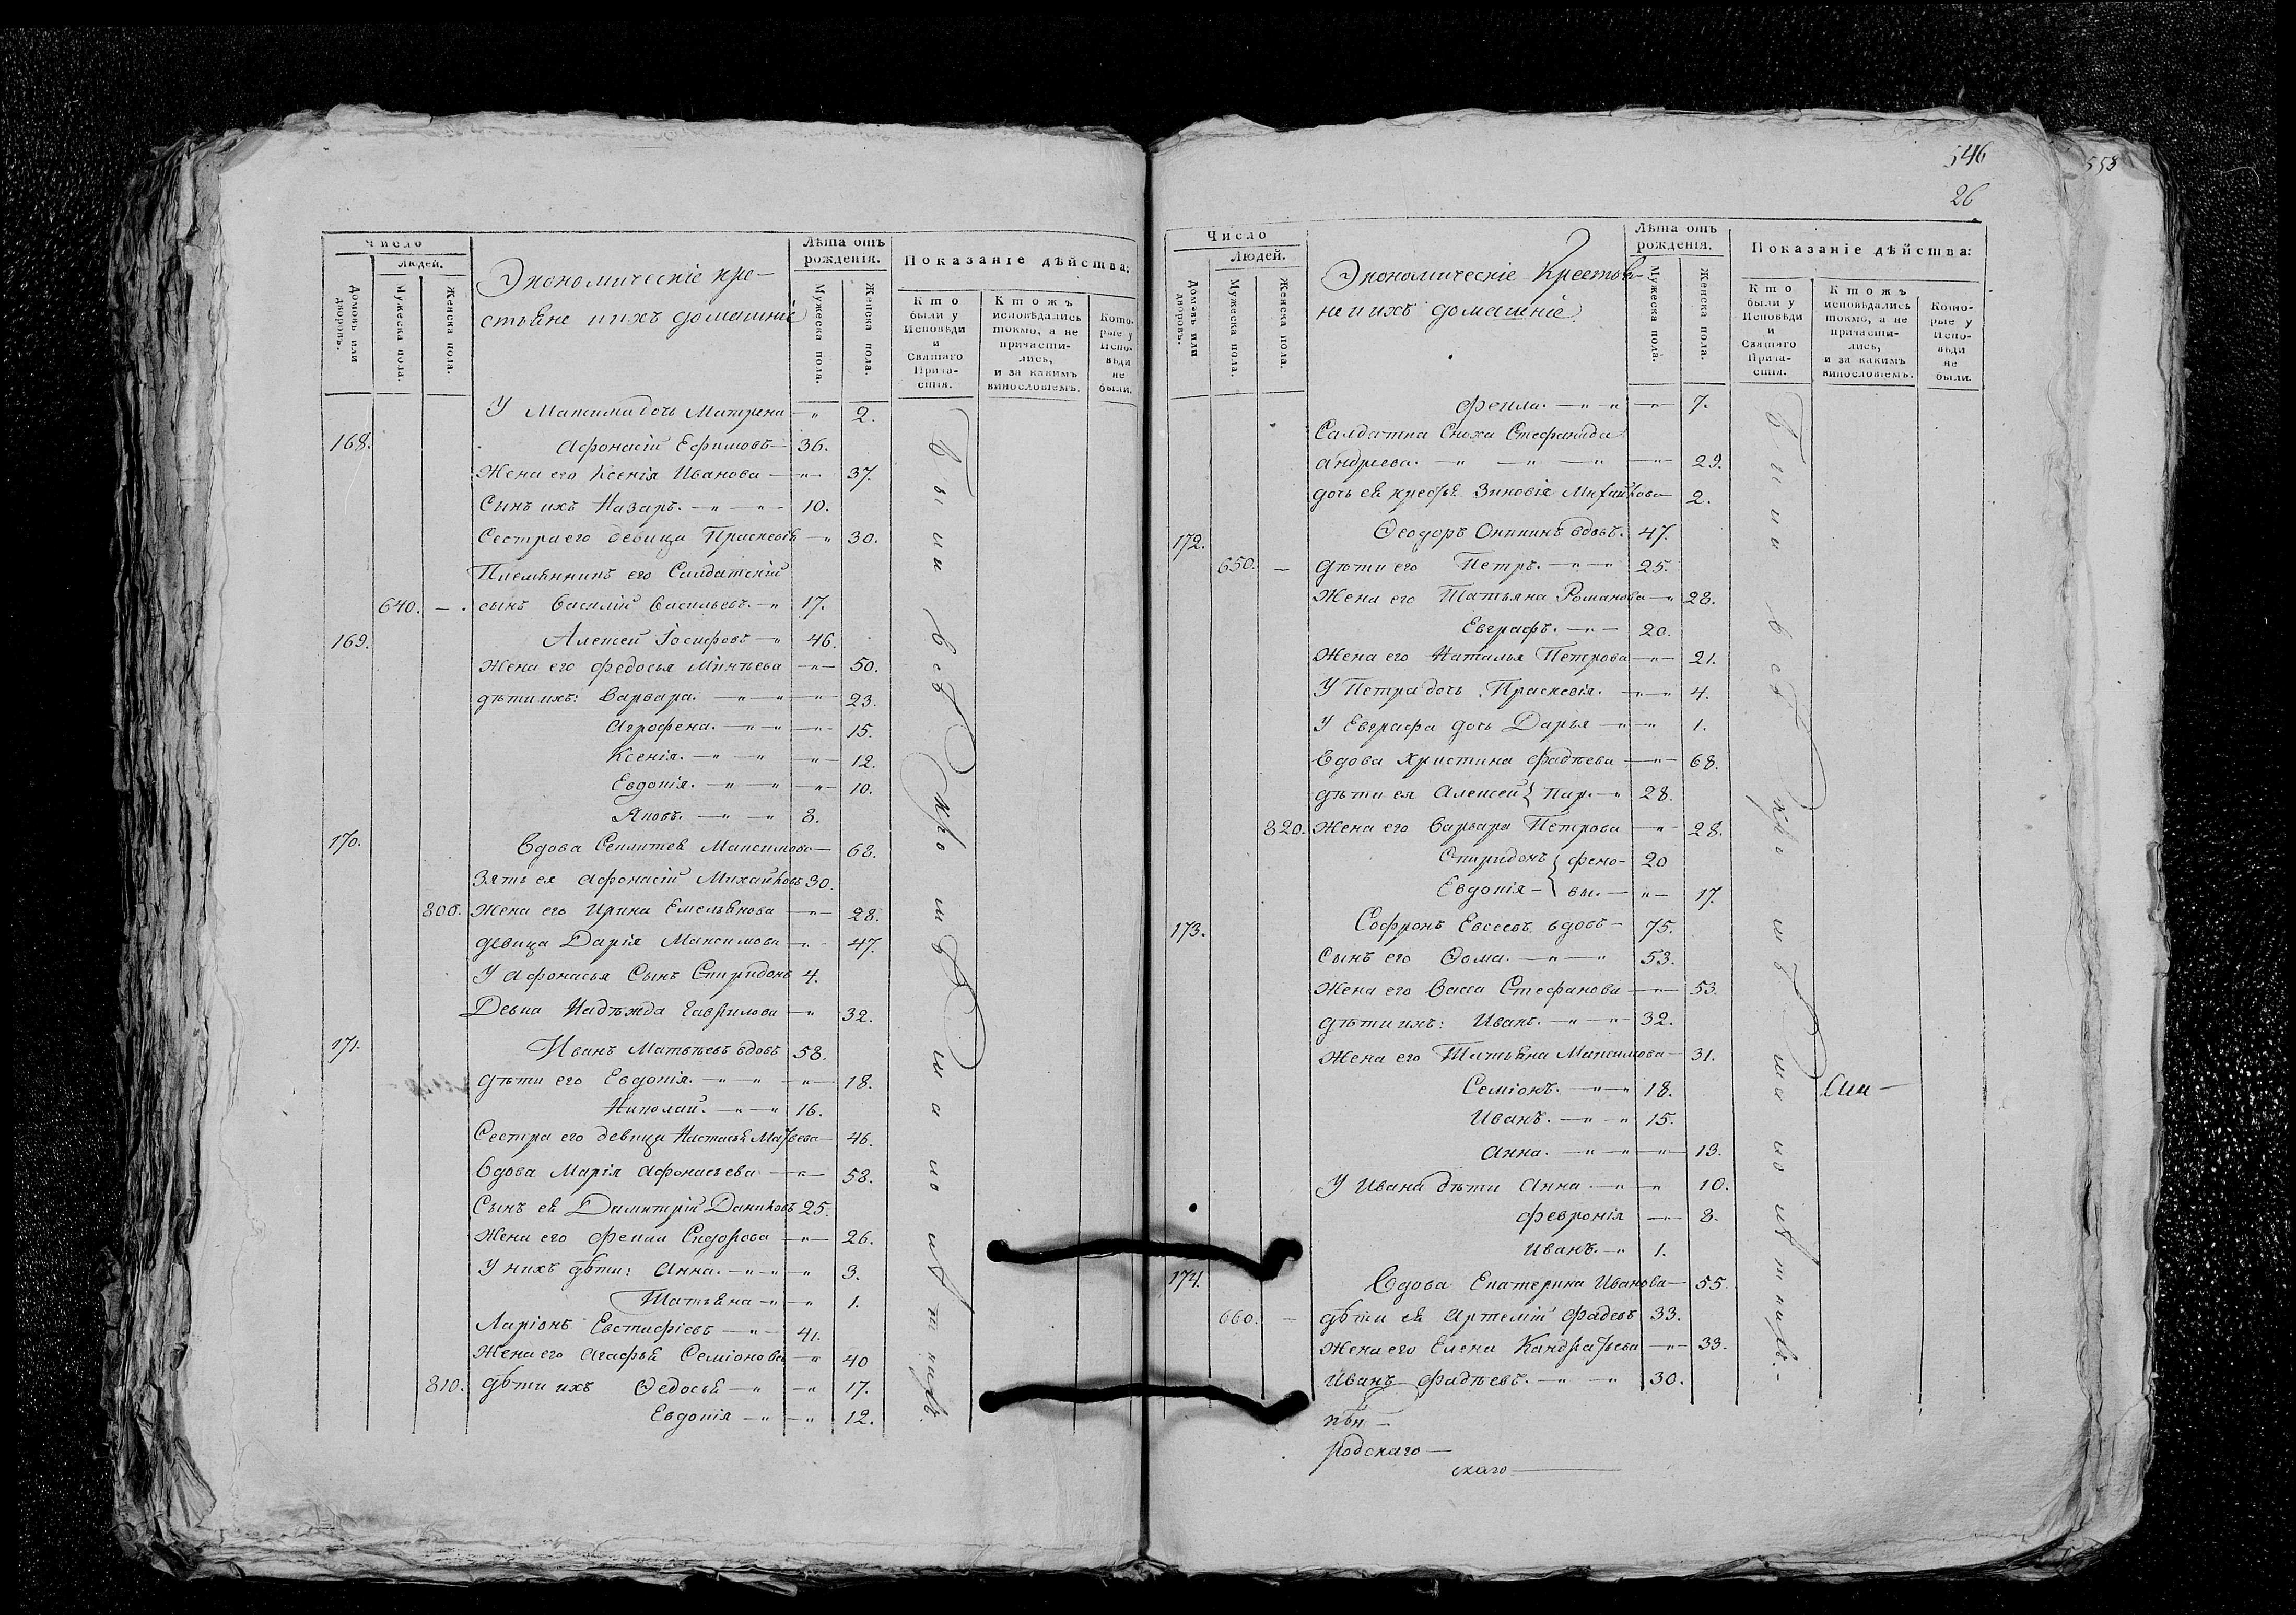 Число
Людей.
Домовъ или дворовъ.
Мужеска пола.
Женска пола.
Экономическіе кре-
стьяне и ихъ домашніе
Лѣта отъ рожденія.
Мужеска пола.
Женска пола.
Показаніе дѣйства:
Кто были у Исповѣди и Святаго Прича-стія.
Ктожъ исповѣдались токмо, а не причасти-лись, и за какимъ винословіемъ.
Кото-рые у Испо-вѣди не были.
У Максима дочь Матрена — " 2.
168. Афонасій Ефимовъ — 36.
Жена его Ксенія Иванова — " — 37.
Сынъ ихъ Назаръ. — " — " — 10.
Сестра его девица Праскевія — " 30.
Племянникъ его Салдатскій
640. — . сынъ Василій Васильевъ. — " 17.
169. Алексей Іосифовъ — " 46.
Жена его Федосья Минѣева — " — 50.
дѣти ихъ: Варвара. — " — " — " 23.
Агрофена. — " — " — " — 15.
Ксенія. — " — " — " — 12.
Евдокія. — " — " — " — 10.
Яковъ. — " — " 8.
170. Вдова Секлитея Максимова — 68.
Зять ея Афонасій Михайловъ 30.
800. Жена его Ирина Емельянова — " — 28.
девица Дарія Максимова — " — 47.
У Афонасья Сынъ Спиридонъ 4.
Девка Надѣжда Гаврилова — " 32.
171. Иванъ Матвѣевъ вдовъ 58.
дѣти его Евдокія. — " — " — " — 18.
Николай. — " — " 16.
Сестра его девица Настасья Матвева — 46.
Вдова Марія Афонасьева — " — 58.
Сынъ ея Димитрій Даниловъ 25.
Жена его Фекла Сидорова — " — 26.
У нихъ дѣти: Анна. — " — " — " 3.
Татьяна — " — " 1.
Ларіонъ Евстафіевъ — " — 41.
Жена его Агафья Семіонова — " 40
810. дѣти ихъ Ѳедосья — " — " 17.
Евдокія — " — " 12.
Были всѣ
546
26
558
Число
Людей.
Домовъ или дворовъ.
Мужеска пола.
Женска пола.
Экономическіе Крестья-
не и ихъ домашніе.
Лѣта отъ рожденія.
Мужеска пола.
Женска пола.
Показаніе дѣйства:
Кто были у Исповѣди и Святаго Прича-стія.
Ктожъ исповѣдались токмо, а не причасти-лись, и за какимъ винословіемъ.
Кото-рые у Испо-вѣди не были.
Фекла. — " — " — " — 7.
Салдатка Сноха Стефанида
Андреева. — " — " — " — " — 29.
дочь ея Зиновія Михайлова — 2.
172. Ѳеодоръ Оникинъ вдовъ. 47.
650. — дѣти его Петръ. — " — " 25.
Жена его Татьяна Романова — " 28.
Евграфъ. — " — 20.
Жена его Наталья Петрова — " — 21.
У Петра дочь Праскевія. — " — " 4.
У Евграфа дочь Дарья — " — " 1.
Вдова Христина Фадѣева — " — 68.
дѣти ея Алексей } Кар. — " 28.
820. Жена его Варвара Петрова — " — 28.
Спиридонъ } фено- 20
Евдокія — } вы. — " — 17.
173. Софронъ Евсеевъ вдовъ — 75.
Сынъ его Ѳома. — " — " 53.
Жена его Васса Стефанова — " — 53.
дѣти ихъ: Иванъ. — " — " — 32.
Жена его Татьяна Максимова — 31.
Семіонъ. — " — " 18.
Иванъ. — " — " 15.
Анна. — " — " — " — 13.
У Ивана дѣти Анна — " — " 10.
Февронія — " — 8.
Иванъ. — " 1.
174. Вдова Екатерина Иванова — 55.
660. — дѣти ея Артемій Фадевъ 33.
Жена его Елена Кандратьева — " — 33.
Иванъ Фадѣевъ. — " — " 30.
Были всѣ
родскаго —
скаго —